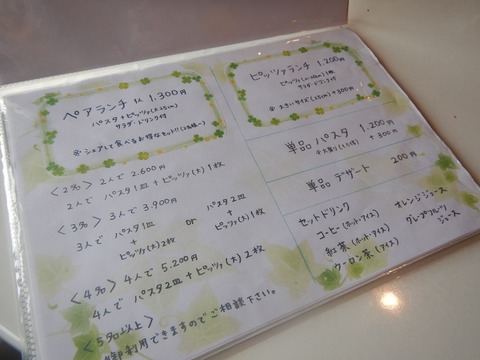 ペアランチ 1人 1.300円
パスタ+ピッツァ(大25cm)
サラダ・ドリンク付
※シェアして食べるお得なセット!!(2名様~)
〈2名〉 2人で 2.600円
2人で パスタ1皿 + ピッツァ(大)1枚
〈3名〉 3人で 3.900円
3人で パスタ1皿 + ピッツァ(大)2枚
or パスタ2皿 + ピッツァ(大)1枚
〈4名〉 4人で 5.200円
4人で パスタ2皿 + ピッツァ(大)2枚
〈5名以上〉
御利用できますのでご相談下さい。
ピッツァランチ 1.200円
サラダ・ドリンク付
※ 大きいサイズ(25cm)+300円
単品 パスタ 1.200円
+300円
単品 デザート 200円
セットドリンク
コーヒー(ホット・アイス)
紅茶(ホット・アイス)
ウーロン茶(アイス)
オレンジジュース
グレプフルーツ
ジュース